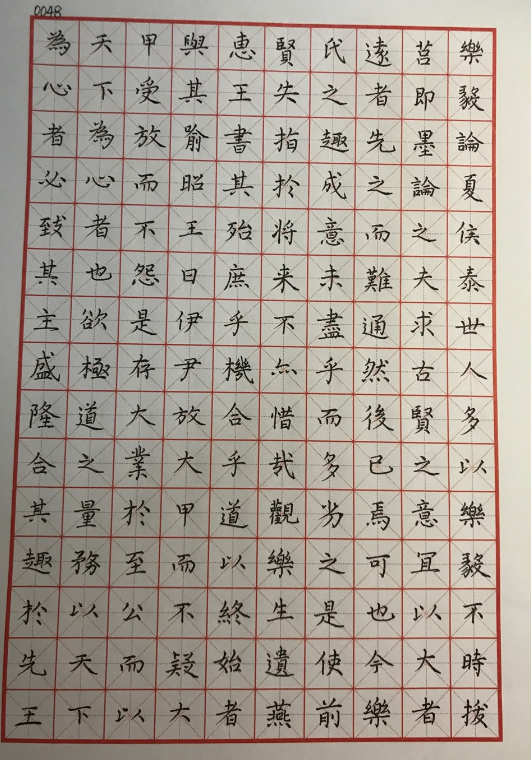 0048
樂毅論夏侯泰世人多以樂毅不時拔
莒即墨論之夫求古賢之意宜以大者
遠者先之而難通然後已焉可也今樂
氏之趣成意未盡乎而多劣之是使前
賢失指於将来不亦惜哉觀樂生遺燕
惠王書其殆庶乎機合乎道以終始者
與其喻昭王曰伊尹放大甲而不疑大
甲受放而不怨是存大業於至公而以
天下為心者也欲極道之量務以天下
為心者必致其主盛隆合其趣於先王